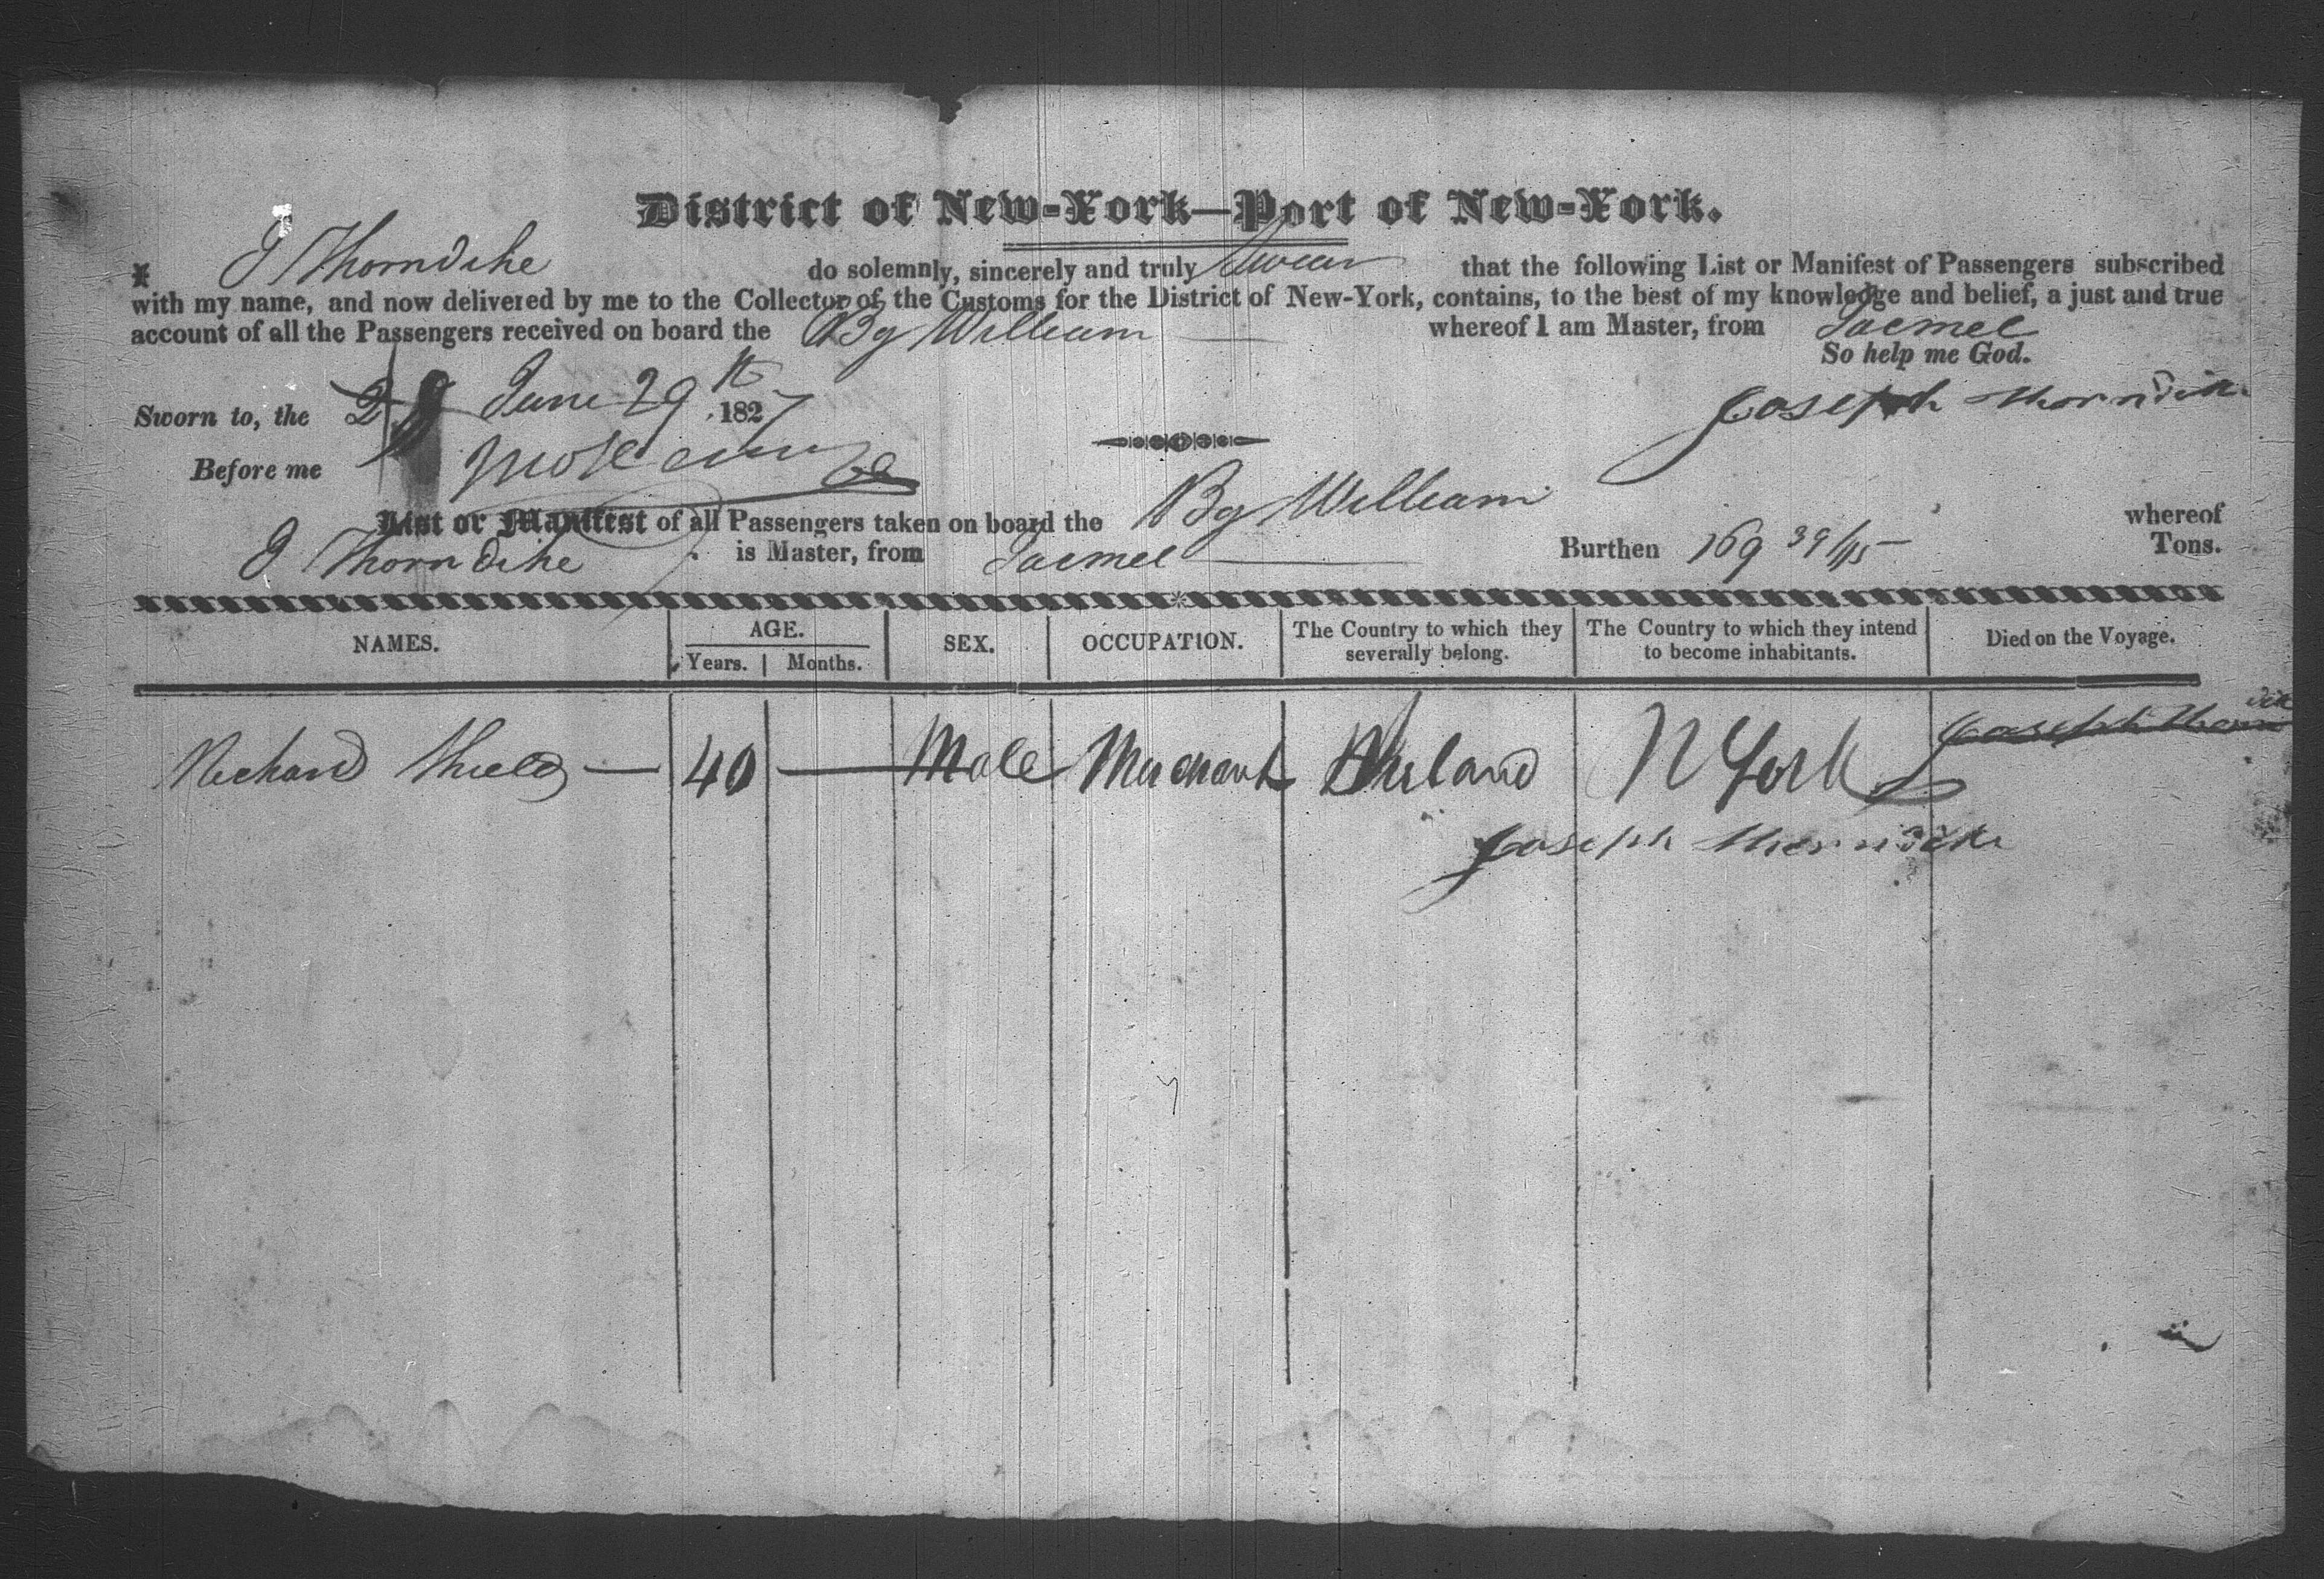 District of New-York—Port of New-York.
I J Thorndike do solemnly, sincerely and truly Swear that the following List or Manifest of Passengers subscribed
with my name, and now delivered by me to the Collector of the Customs for the District of New-York, contains, to the best of my knowledge and belief, a just and true
account of all the Passengers received on board the Bg William whereof I am Master, from Jacmel
So help me God.
Sworn to, the June 29th 1827
Joseph Thorndike
Before me
List or Manifest of all Passengers taken on board the Bg William whereof
J Thorndike is Master, from Jacmel Burthen 169 39/95 Tons.
NAMES. AGE. SEX. OCCUPATION. The Country to which they severally belong. The Country to which they intend to become inhabitants. Died on the Voyage.
Years. Months.
Joseph Thorndike
Richard Shields — 40 — Male Merchant Ireland N York
Joseph Thorndike